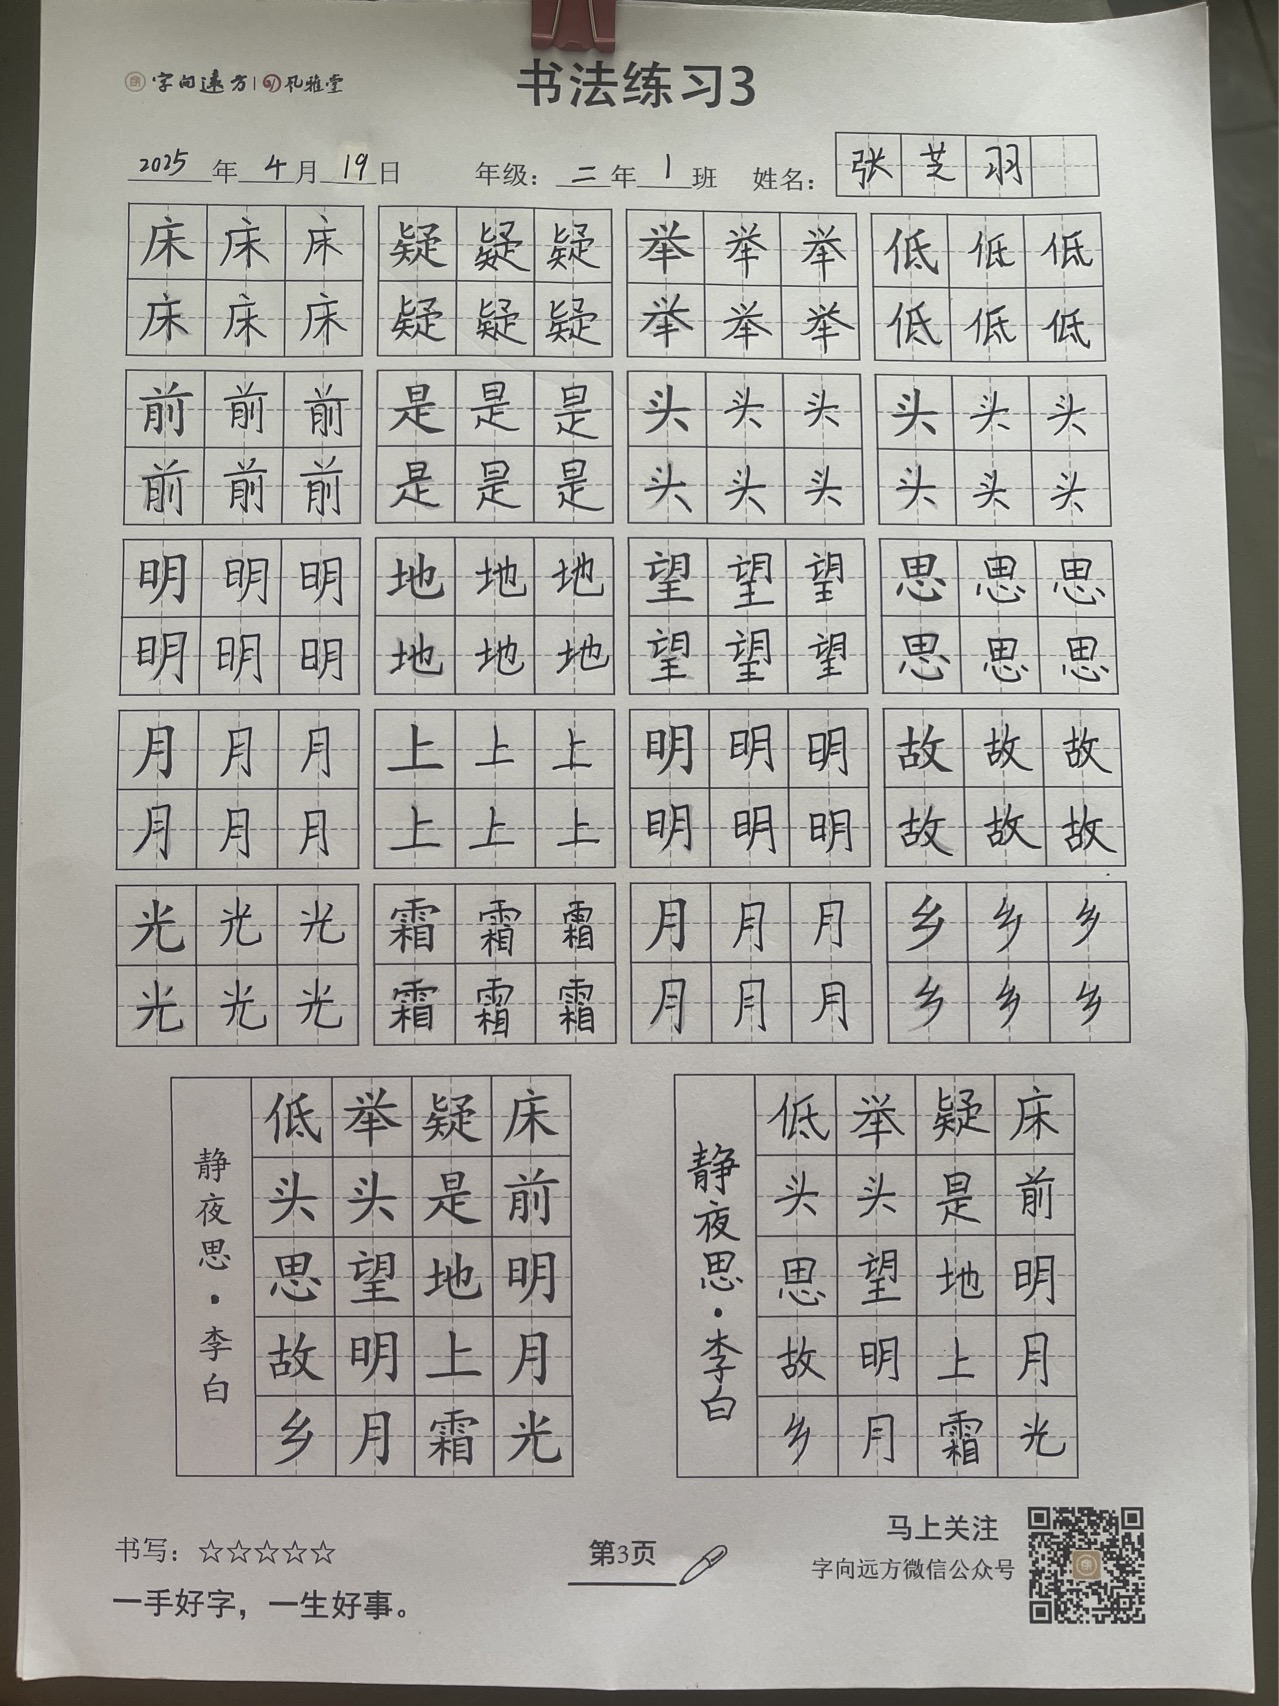 字向远方 孔雅堂
书法练习3
2025年4月19日 年级：二年1班 姓名：张芝羽
床床床 疑疑疑 举举举 低低低
床床床 疑疑疑 举举举 低低低
前前前 是是是 头头头 头头头
前前前 是是是 头头头 头头头
明明明 地地地 望望望 思思思
明明明 地地地 望望望 思思思
月月月 上上上 明明明 故故故
月月月 上上上 明明明 故故故
光光光 霜霜霜 月月月 乡乡乡
光光光 霜霜霜 月月月 乡乡乡
床前明月光
疑是地上霜
举头望明月
低头思故乡
静夜思·李白
床前明月光
疑是地上霜
举头望明月
低头思故乡
静夜思·李白
书写：☆☆☆☆☆
一手好字，一生好事。
第3页
马上关注
字向远方微信公众号